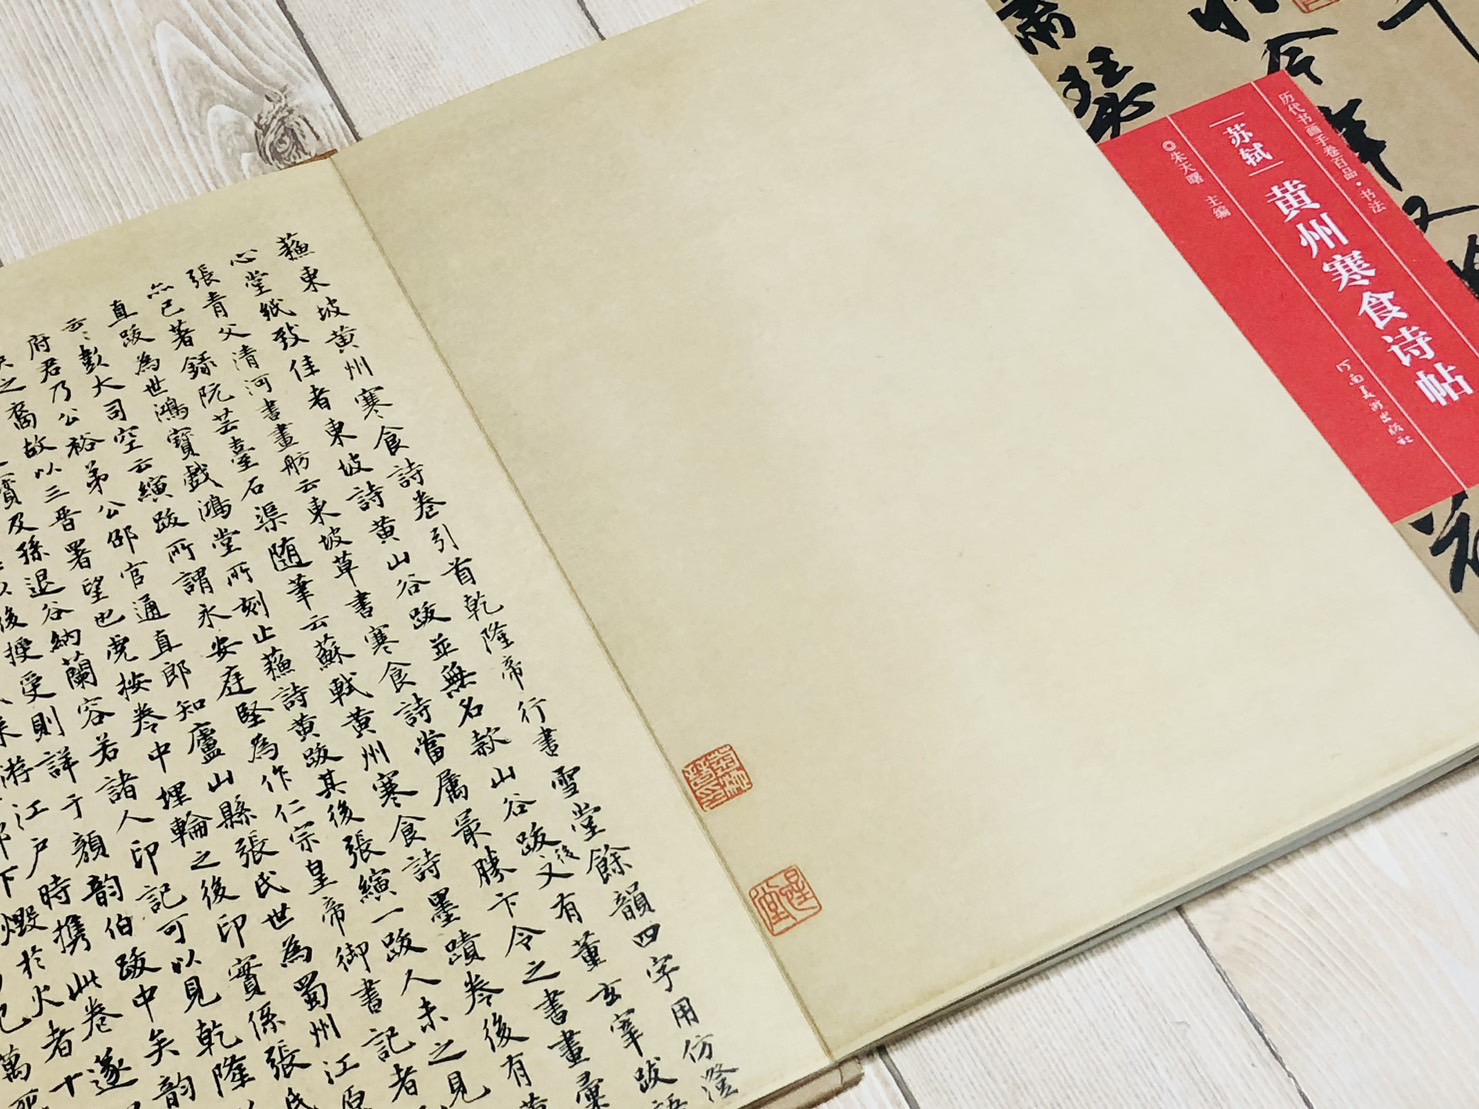 历代书画手卷百品·书法
苏轼
黄州寒食诗帖
朱天曙 主编
河南美术出版社
今年又
蕭瑟
蘓東坡黄州寒食詩卷引首乾隆帝行書雪堂餘韻四字用仿澄
心堂紙致佳者東坡詩黄山谷跋並無名款山谷跋後又有董玄宰跋語
張青父清河書畫舫云東坡草書寒食詩當属最勝卞令之書畫彙
亦已著録阮芸臺石渠随筆云蘇軾黄州寒食詩墨蹟卷後有黄
直跋為世鴻寳戲鴻堂所刻止蘓詩黄跋其後張縯一跋人未之見
云〻彭大司空云縯跋所謂永安庭堅為作仁宗皇帝御書記者
府君乃公裕弟公邵官通直郎知盧山縣張氏世為蜀州江原
之裔故以三晋署望也虎按卷中埋輪之後印實係張氏
寳及孫退谷納蘭容若諸人印記可以見乾隆
以後授受則詳于顔韵伯跋中矣韵
来游江户時携此卷遂
下燬於火者十